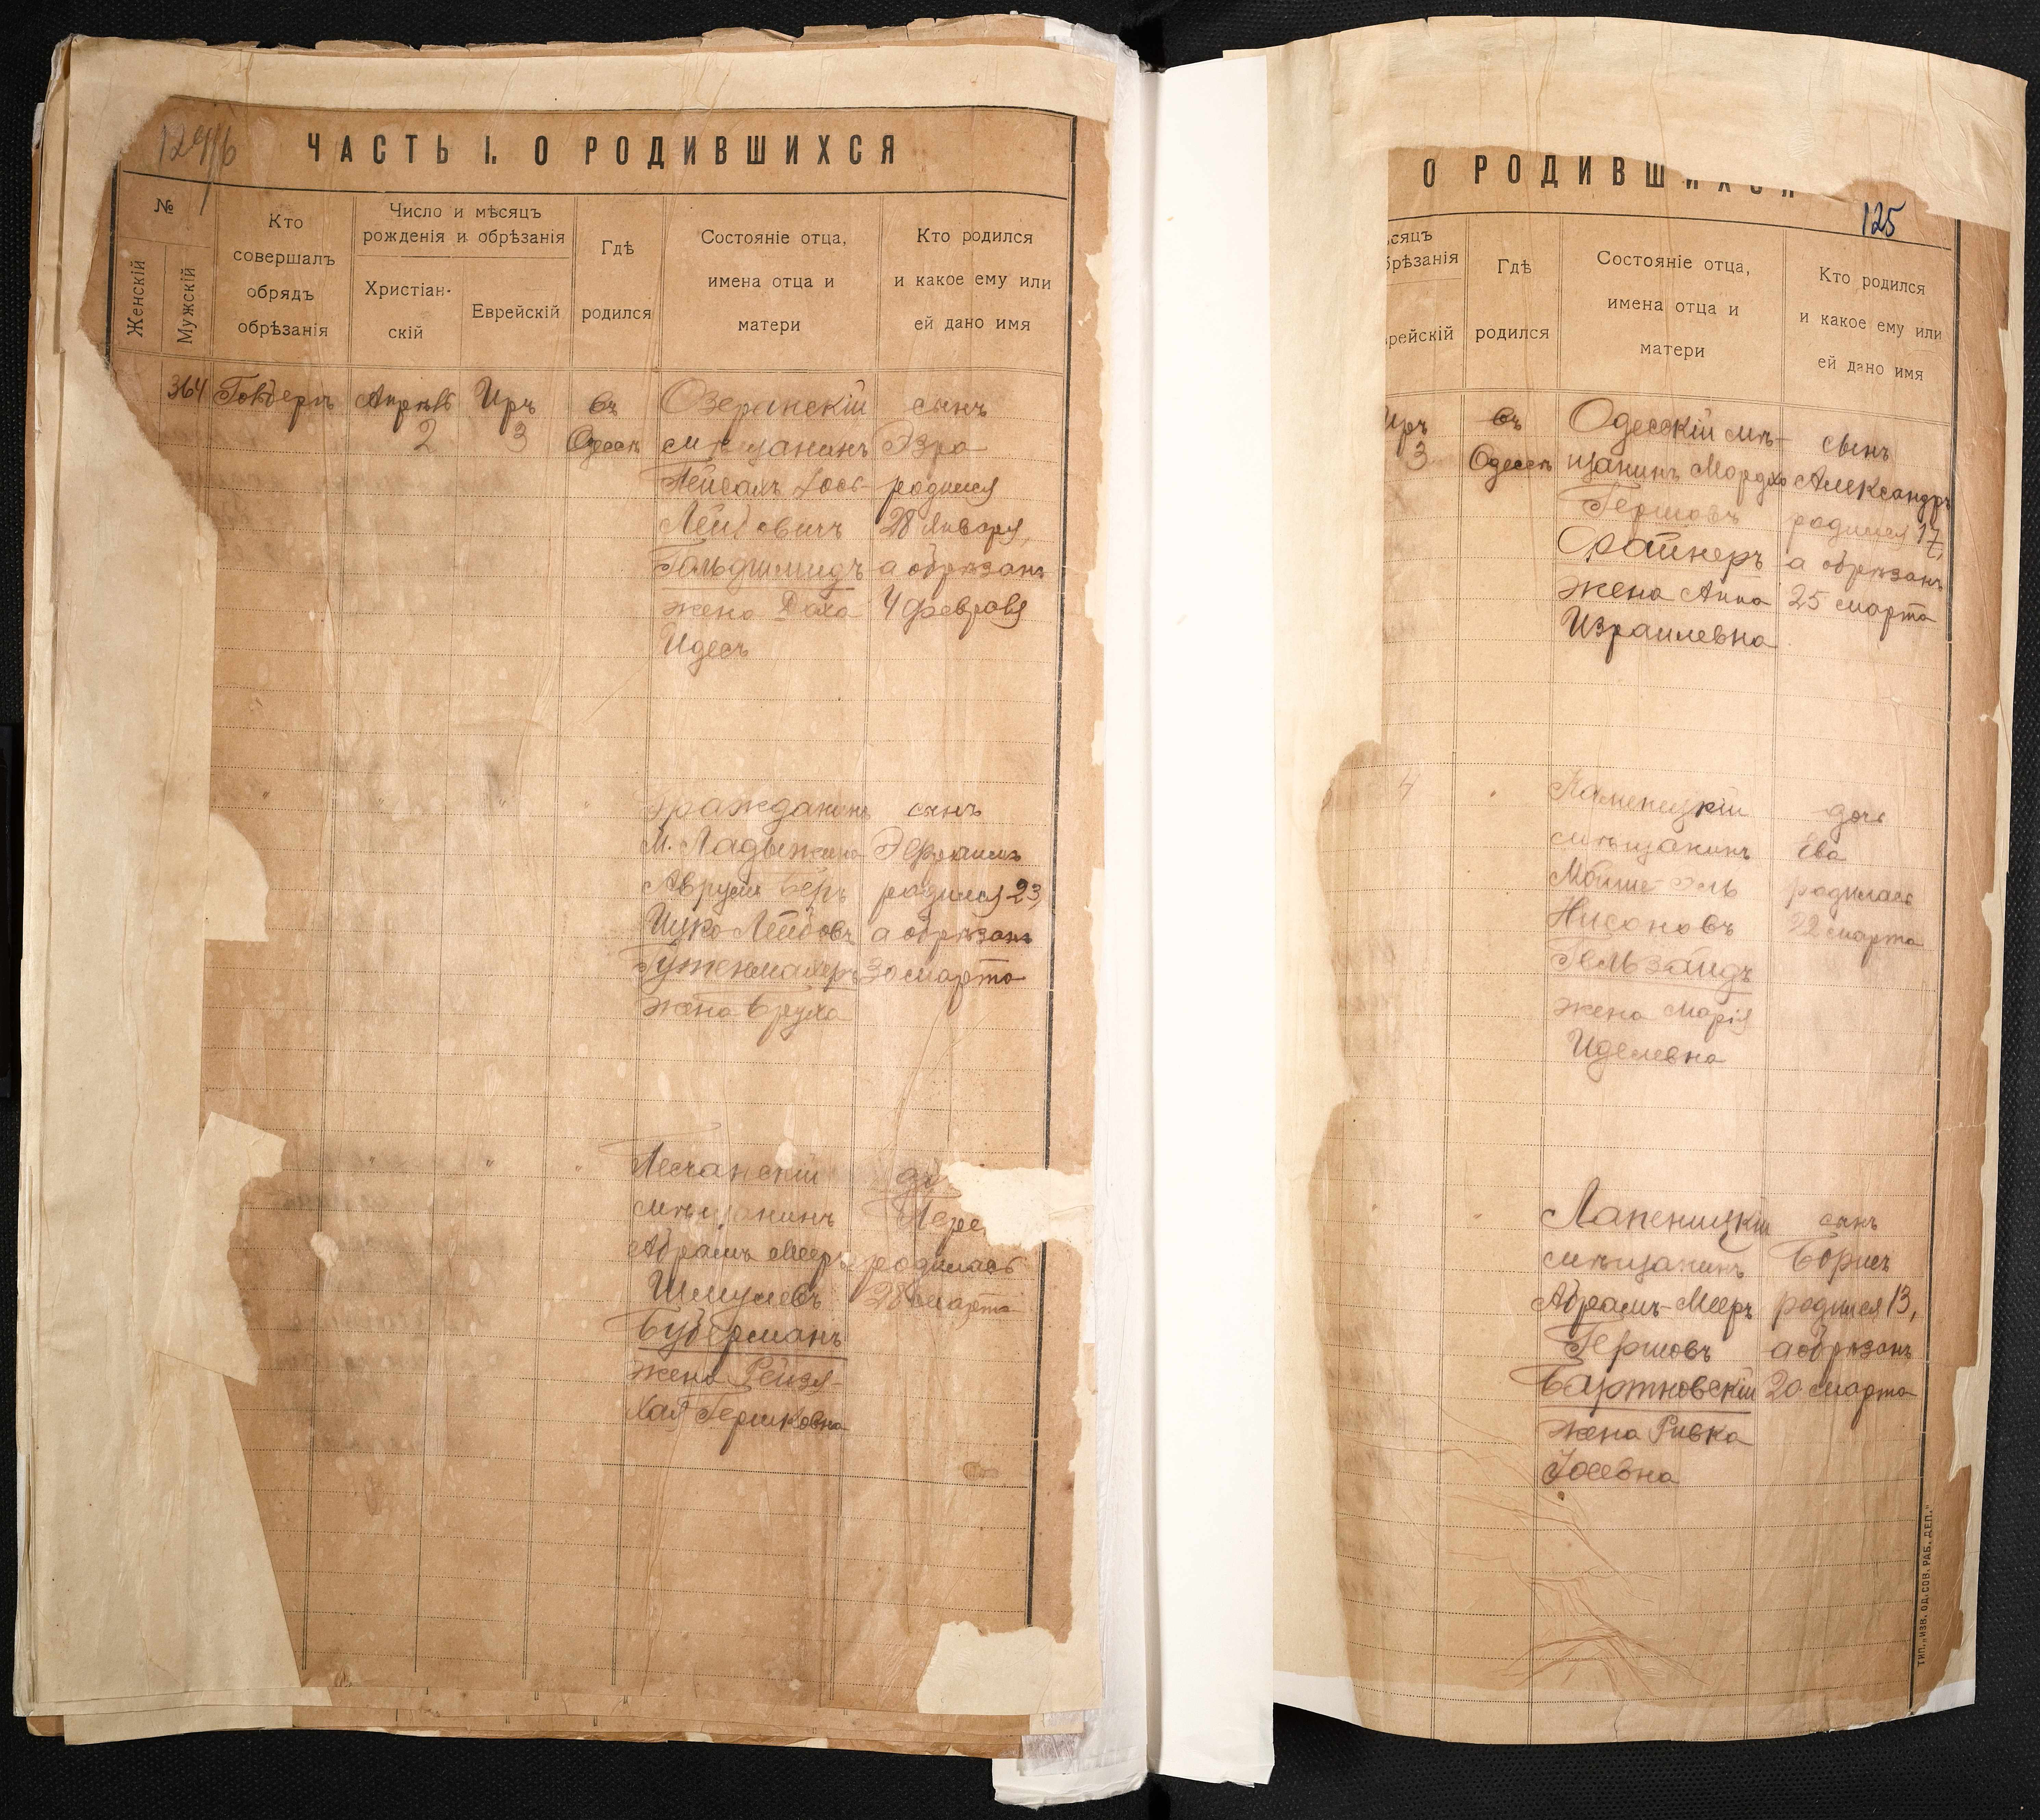 ЧАСТЬ I. О РОДИВШИХСЯ
№
Женскій
Мужскій
Кто
совершалъ
обрядъ
обрѣзанія
Число и мѣсяцъ
рожденія и обрѣзанія
Христіан-
скій
Еврейскій
Гдѣ
родился
Состояніе отца,
имена отца и
матери
Кто родился
и какое ему или
ей дано имя
364
Апрѣль
2
Иръ
3
въ
Одессѣ
Озеранскій
мѣщанинъ
Пейсахъ Іось-
Лейбовичъ
Гольдшмидъ
жена Хаха
Идесъ
сынъ
Эзра
родился
28 Января,
а обрѣзанъ
4 февраля
Гражданинъ
М. Ладыжина
Аврумъ Беръ
Ицко Лейбовъ
Гуженмахеръ
жена Бруха
сынъ
Эфраимъ
родился 23,
а обрѣзанъ
30 марта
Песчанскій
мѣщанинъ
Абрамъ Мееръ
Шмулевъ
Буберманъ
жена Рейзя-
Хая Гершковна
родилась
28 марта
О РОДИВШИХСЯ
125
ѣсяцъ
брѣзанія
врейскій
Гдѣ
родился
Состояніе отца,
имена отца и
матери
Кто родился
и какое ему или
ей дано имя
Иръ
3
въ
Одессѣ
Одесскій мѣ-
щанинъ Мордко
Гершовъ
Срайнеръ
жена Анна
Израилевна
сынъ
Александръ
родился 17,
а обрѣзанъ
25 марта
4
Каменецкій
мѣщанинъ
Мойше-Эль
Нисоновъ
Гельзайдъ
жена Марія
Иделевна
дочь
Ева
родилась
22 марта
Лапеницкій
мѣщанинъ
Абрамъ-Мееръ
Гершовъ
Бартновскій
жена Ривка
Іосевна
сынъ
Борисъ
родился 13,
а обрѣзанъ
20 марта
ТИП. „ИЗВ. ОД. СОВ. РАБ. ДЕП."